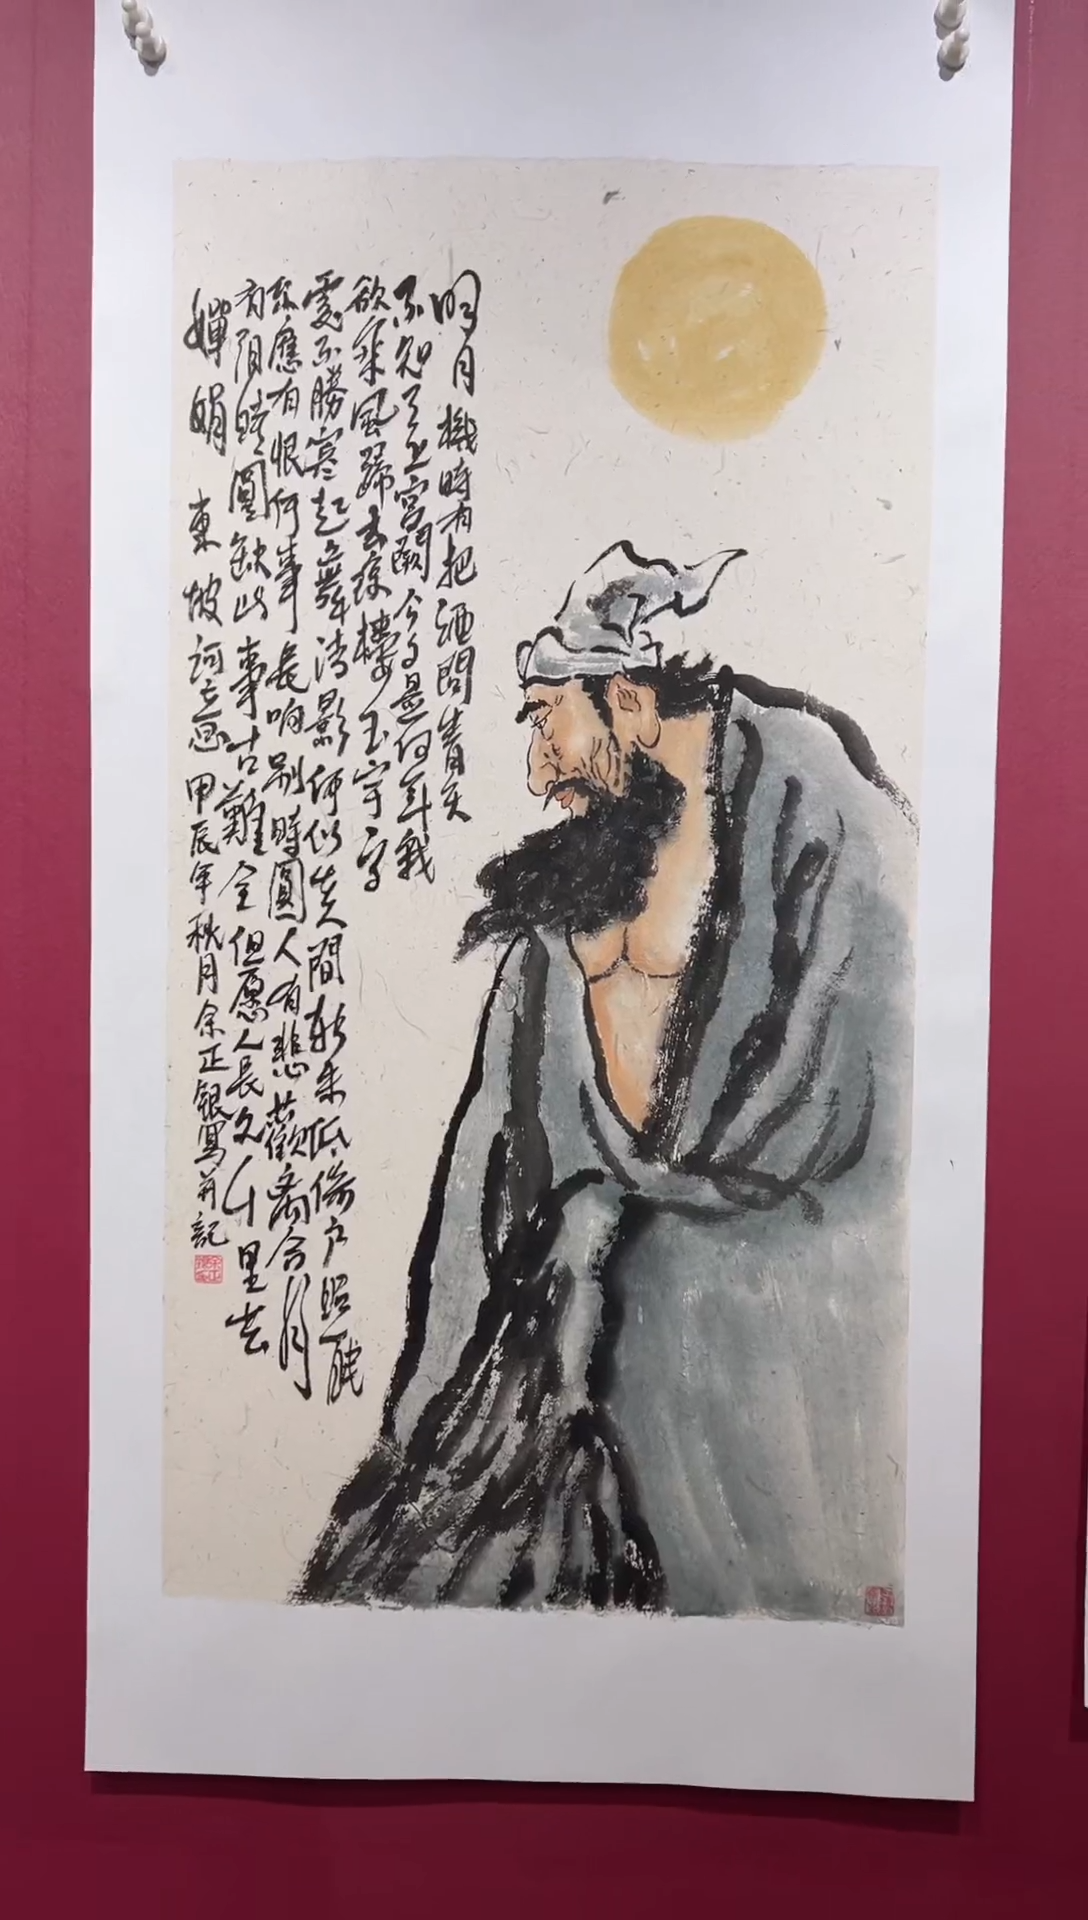 明月幾時有把酒問青天
不知天上宮闕今夕是何年我
欲乘風歸去瓊樓玉宇高
處不勝寒起舞清影何似在人間轉朱低倚户照無眠
不應有恨何事長向别時圓人有悲歡離合月
有阴晴圓缺此事古難全但愿人長久千里共
嬋娟 東坡詞意 甲辰年秋月余正銀寫并記